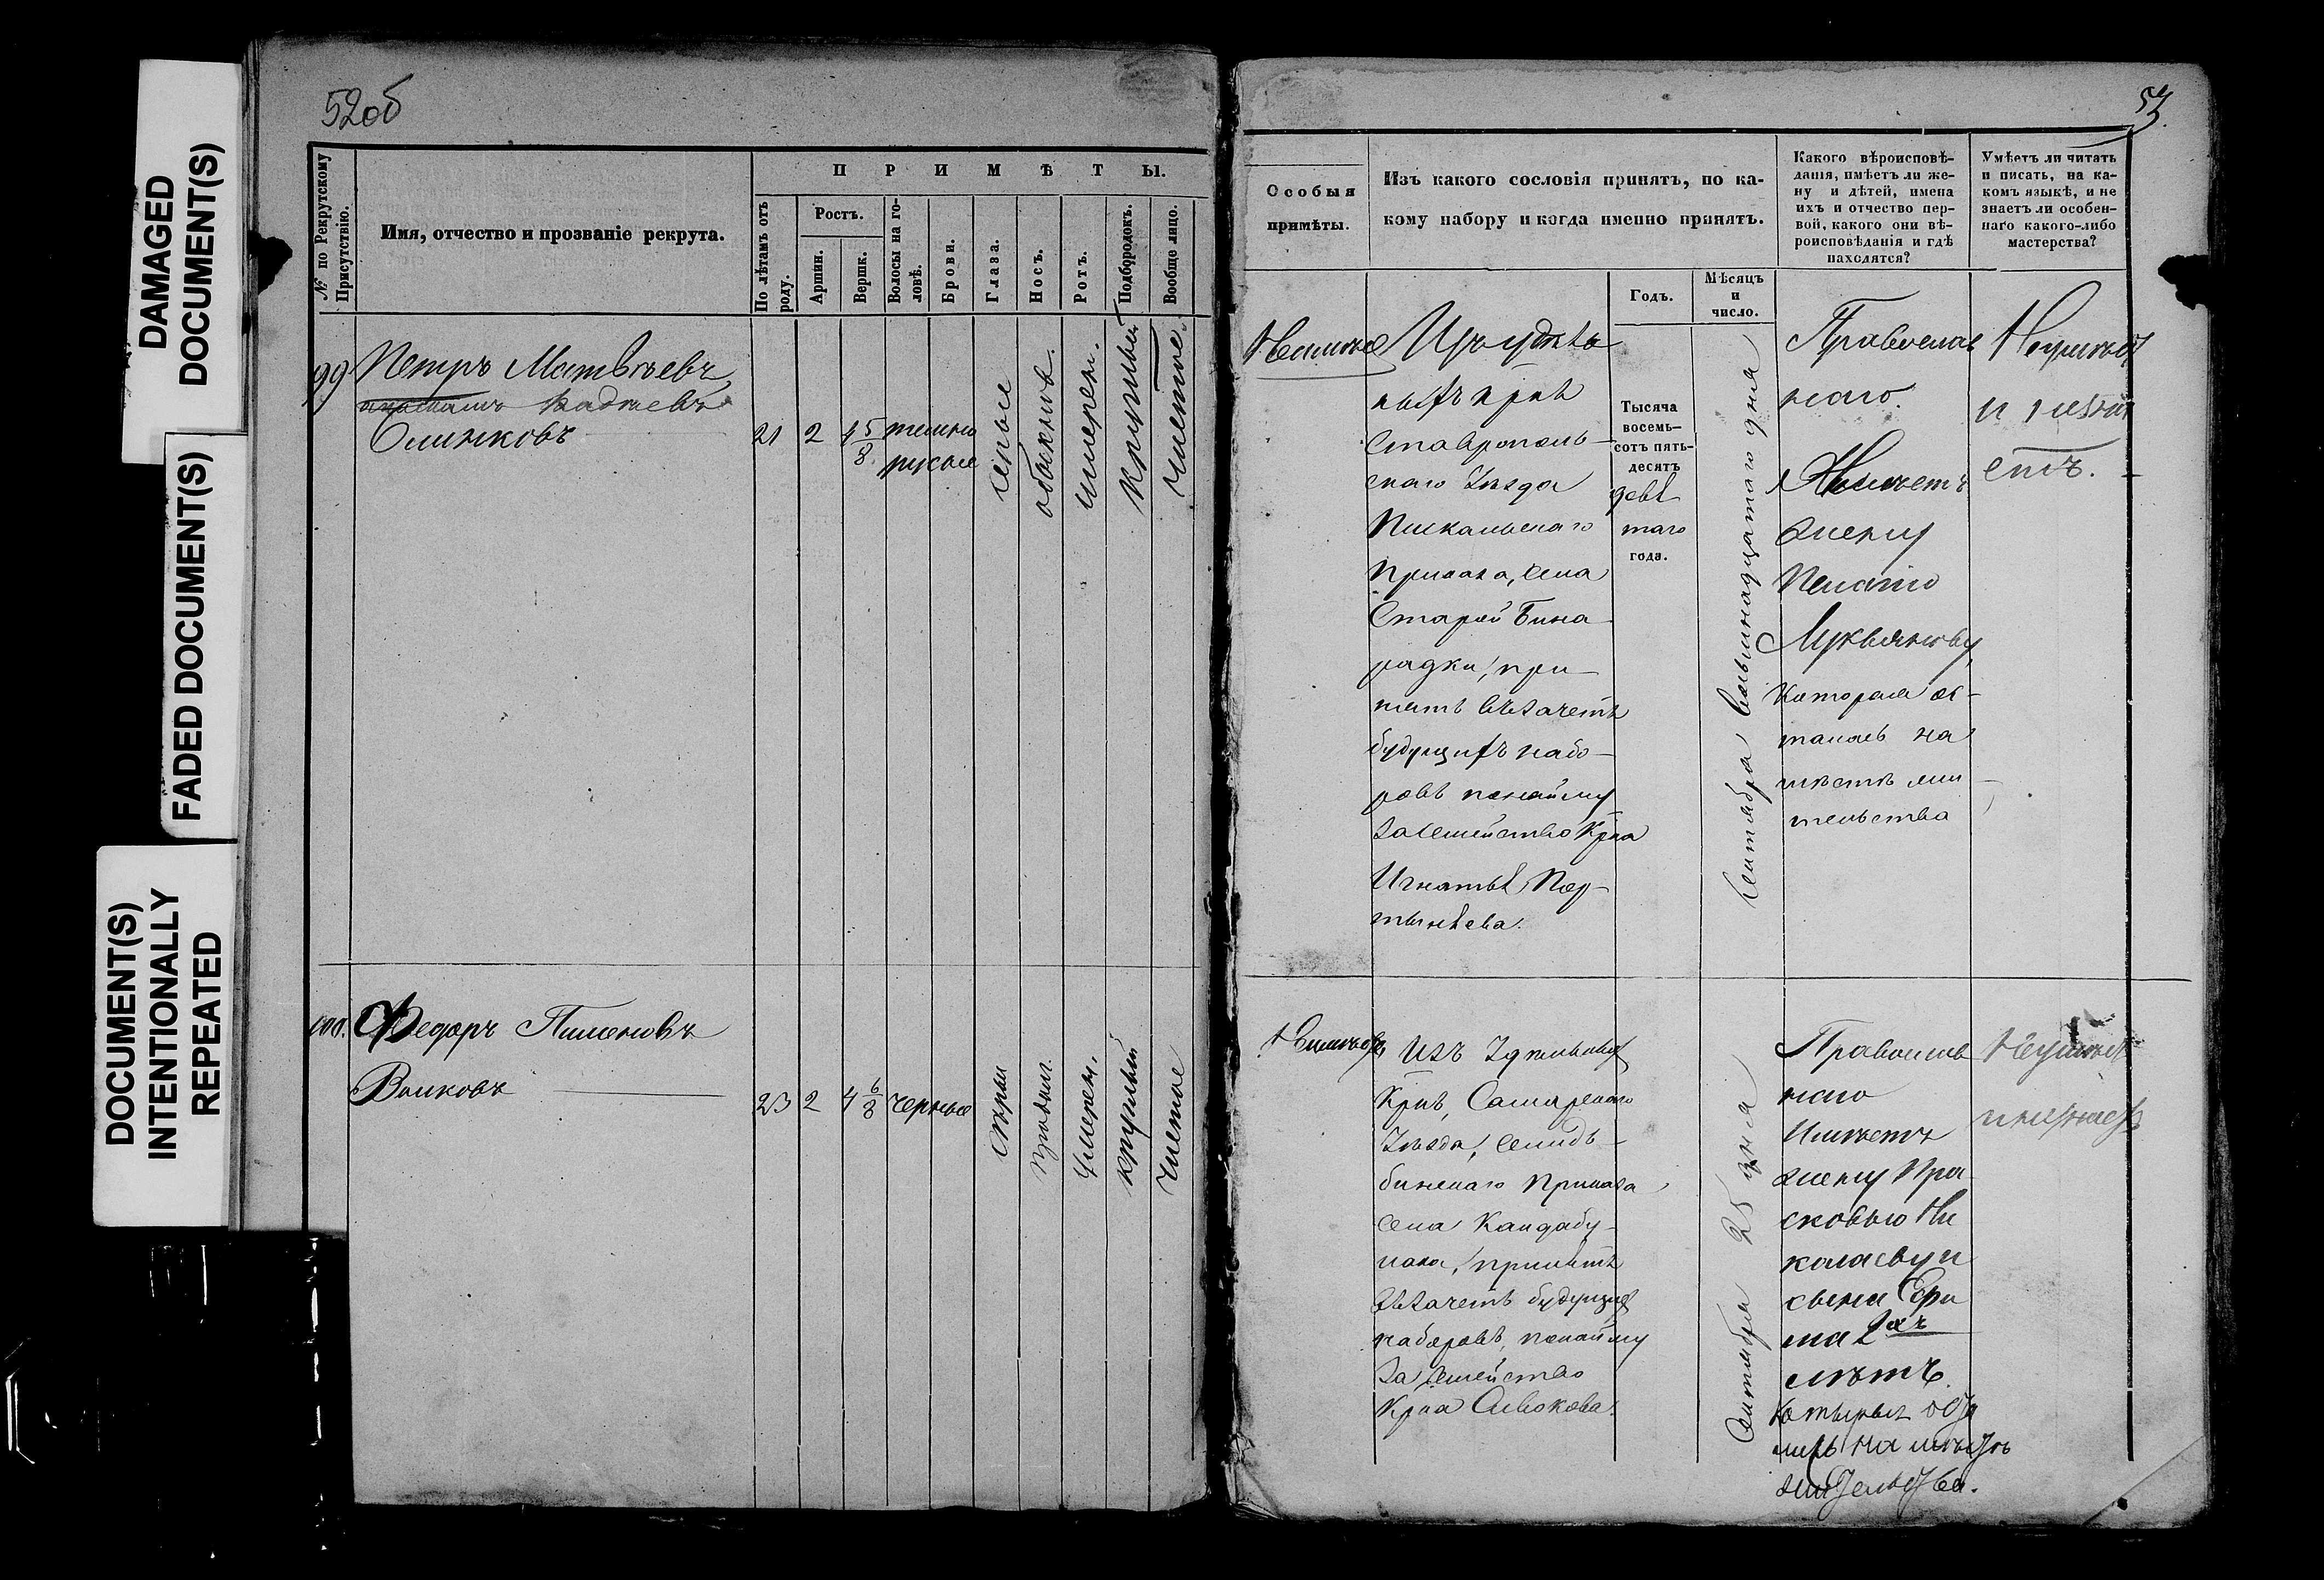 DAMAGED
DOCUMENT(S)
FADED DOCUMENT(S)
DOCUMENT(S)
INTENTIONALLY
REPEATED
52об
№ по Рекрутскому
Присутствію.
Имя, отчество и прозваніе рекрута.
ПРИМѢТЫ.
По лѣтамъ отъ
роду.
Ростъ.
Аршин.
Вершк.
Волосы на го-
ловѣ.
Брови.
Глаза.
Носъ.
Ротъ.
Подбородокъ.
Вообще лицо.
99
Петръ Матвѣевъ
Слинковъ
21
2
4 5/8
темно
русые
сѣрые
умерен.
круглый
чистое
100.
Федоръ Пименовъ
Волковъ
23
2
4 6/8
черные
умерен.
круглый
чистое
53.
Особыя
примѣты.
Изъ какого сословія принятъ, по ка-
кому набору и когда именно принятъ.
Годъ.
Мѣсяцъ
и
число.
Какого вѣроисповѣ-
данія, имѣетъ ли же-
ну и дѣтей, имена
ихъ и отчество пер-
вой, какого они вѣ-
роисповѣданія и гдѣ
находятся?
Умѣетъ ли читать
и писать, на ка-
комъ языкѣ, и не
знаетъ ли особен-
наго какого-либо
мастерства?
Изъ удѣль
ныхъ крнъ
Ставрополь-
скаго Уѣзда
Приказа, села
Старой Бина
радки, при
нятъ въ зачетъ
будущихъ набо-
ровъ по найму
за семейство Крна
Игнатья Пор-
Тысяча
восемь-
сотъ пять-
десятъ
девя
таго
года.
Сентября восьмнадцатого дня
Православ
наго.
Имѣетъ
жену
Пелагею
Лукьянову,
которая ос-
талась на
мѣстѣ жи
тельства
Изъ Удѣльныхъ
Крнъ, Самарскаго
Уѣзда,
Приказа
села Кандабу-
лака, принятъ
въ зачетъ будущихъ
наборовъ, по найму
за семейство
Сентября 25 дня
Православ
наго
Имѣетъ
жену Пра
сковью Ни
колаеву и
сына
2хъ
лѣтъ.
на мѣстѣ
жительства.